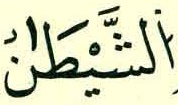 ٱلشَّيْطَٰنُ